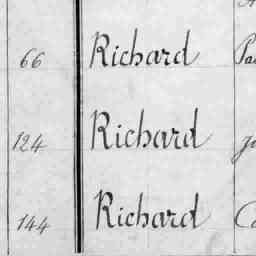 66 Richard
124 Richard
144 Richard